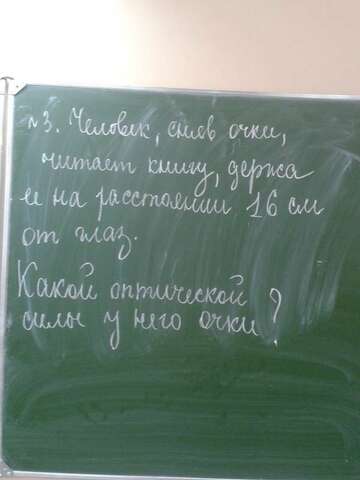 №3. Человек, сняв очки,
читает книгу, держа
ее на расстоянии 16 см
от глаз.
Какой оптической
силы у него очки?